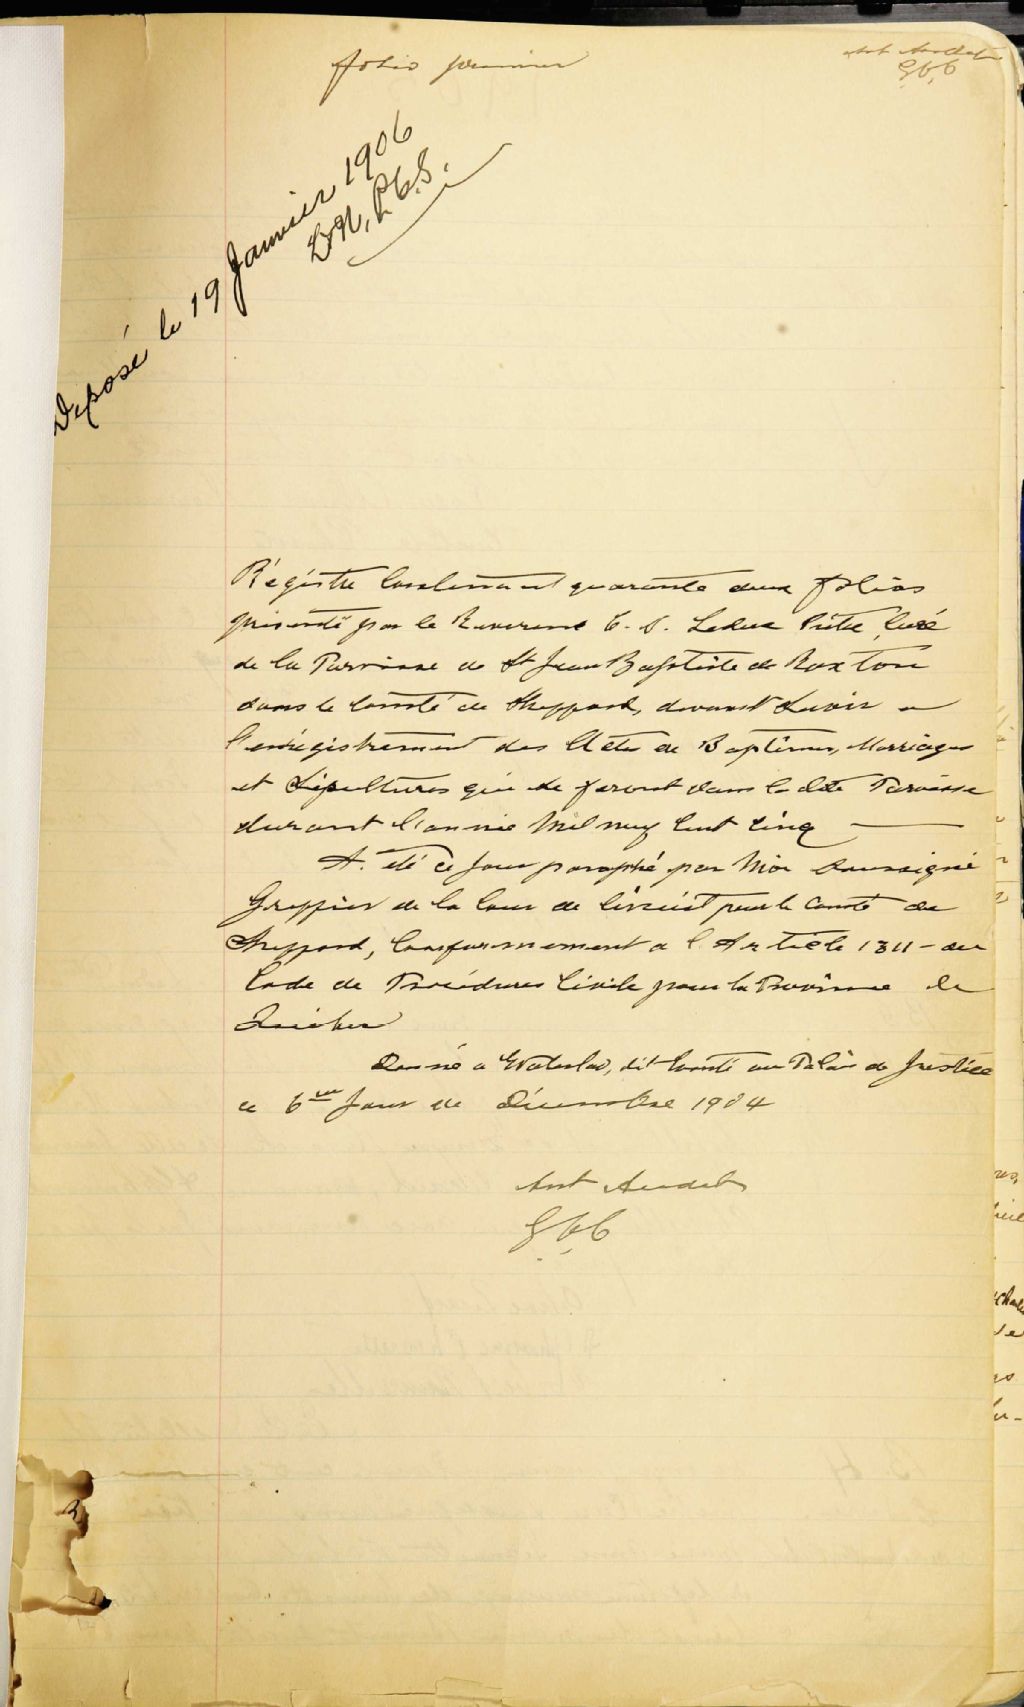 folio premier
Ant Audet
G.C.C
Déposé le 19 Janvier 1906
D.N, P.C.S.
Régistre Contenant quarante deux folios
présenté par le Reverend C. S. Leduc Prêtre, Curé
de la Paroisse de St Jean Baptiste de Roxton
dans le Comté de Sheppard, devant servir a
l'enrégistrement des Actes de Baptêmes, Marriages
et Sépultures qui se feront dans la dite Paroisse
durant l'année Mil neuf Cent Cinq
A. été ce Jour paraphé par Moi Soussigné
Greffier de la Cour de Circuit pour le Comté de
Sheppard, Conformement a l'Article 1311 - du
Code de Procédures Civile pour la Province de
Québec
Donné a Waterloo, dit Comté au Palais de Justice
ce 6me Jour de Décembre 1904
Ant Audet
G.C.C